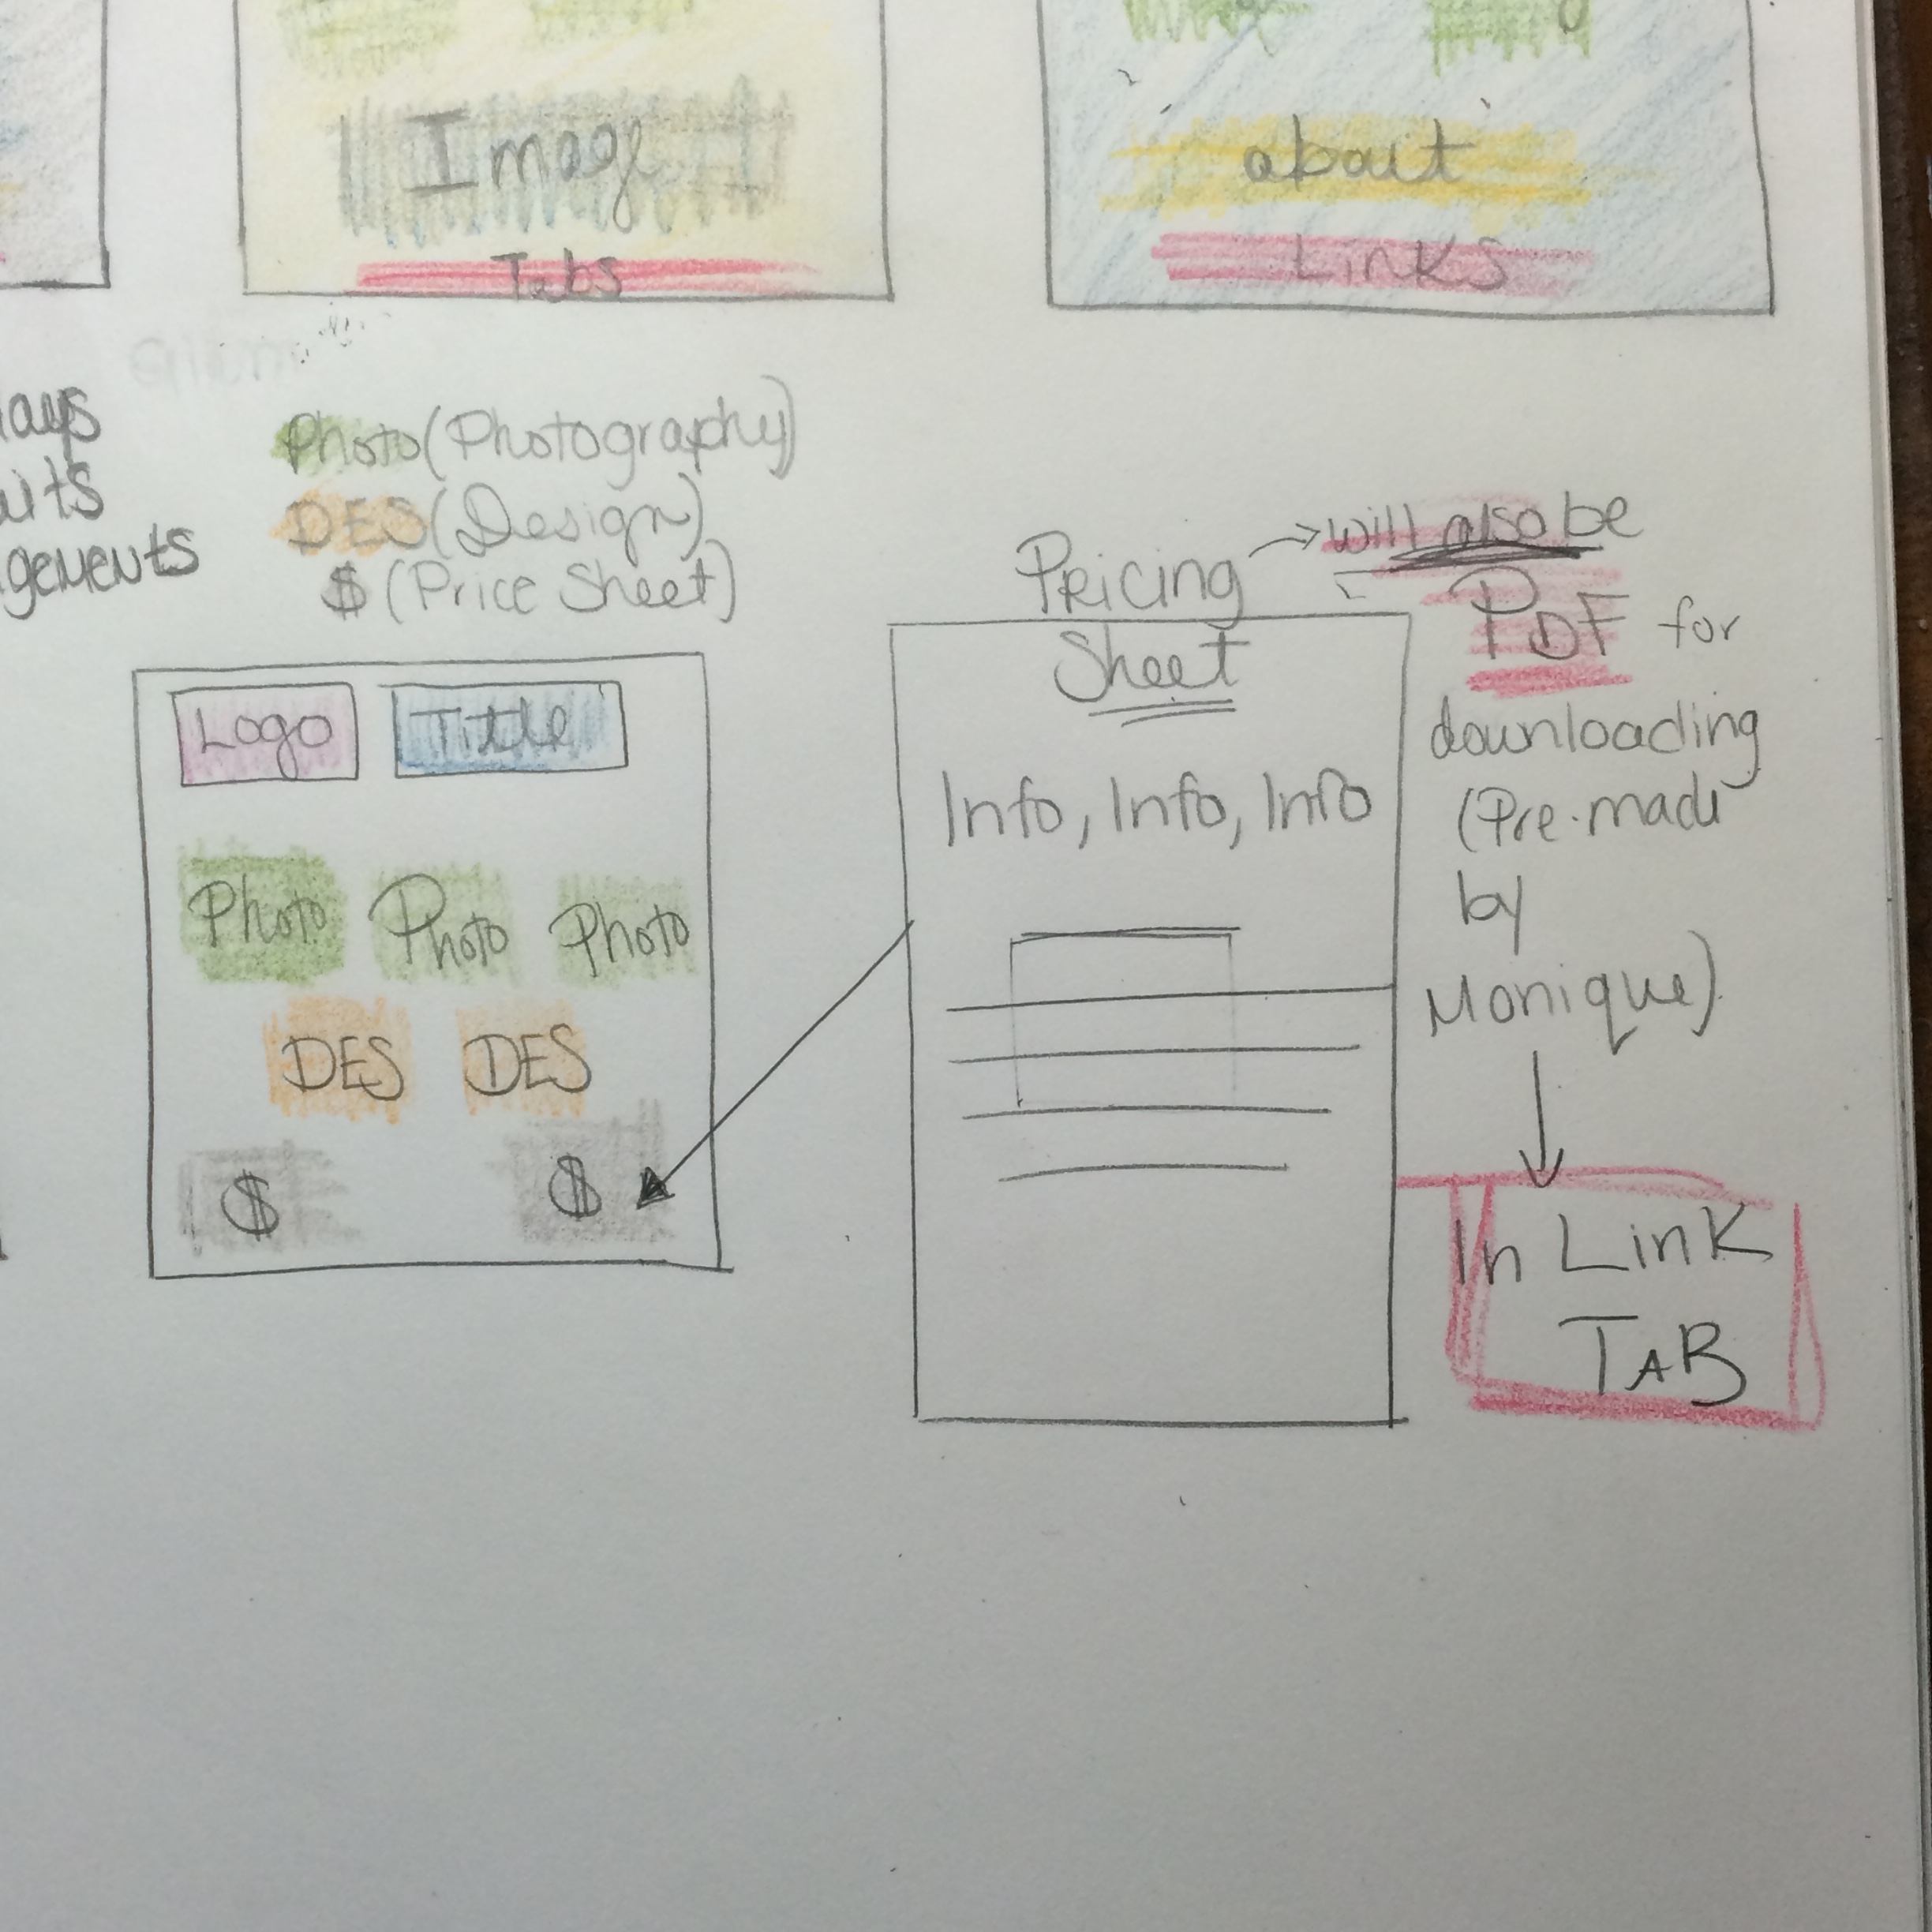 Image
Tabs
about
Links
Photo (Photography)
DES (Design)
$ (Price Sheet)
Logo Title
Photo Photo Photo
DES DES
$ $
Pricing
Sheet
Info, Info, Info
will also be
PDF for
downloading
(Pre-made
by
Monique)
In Link
TAB